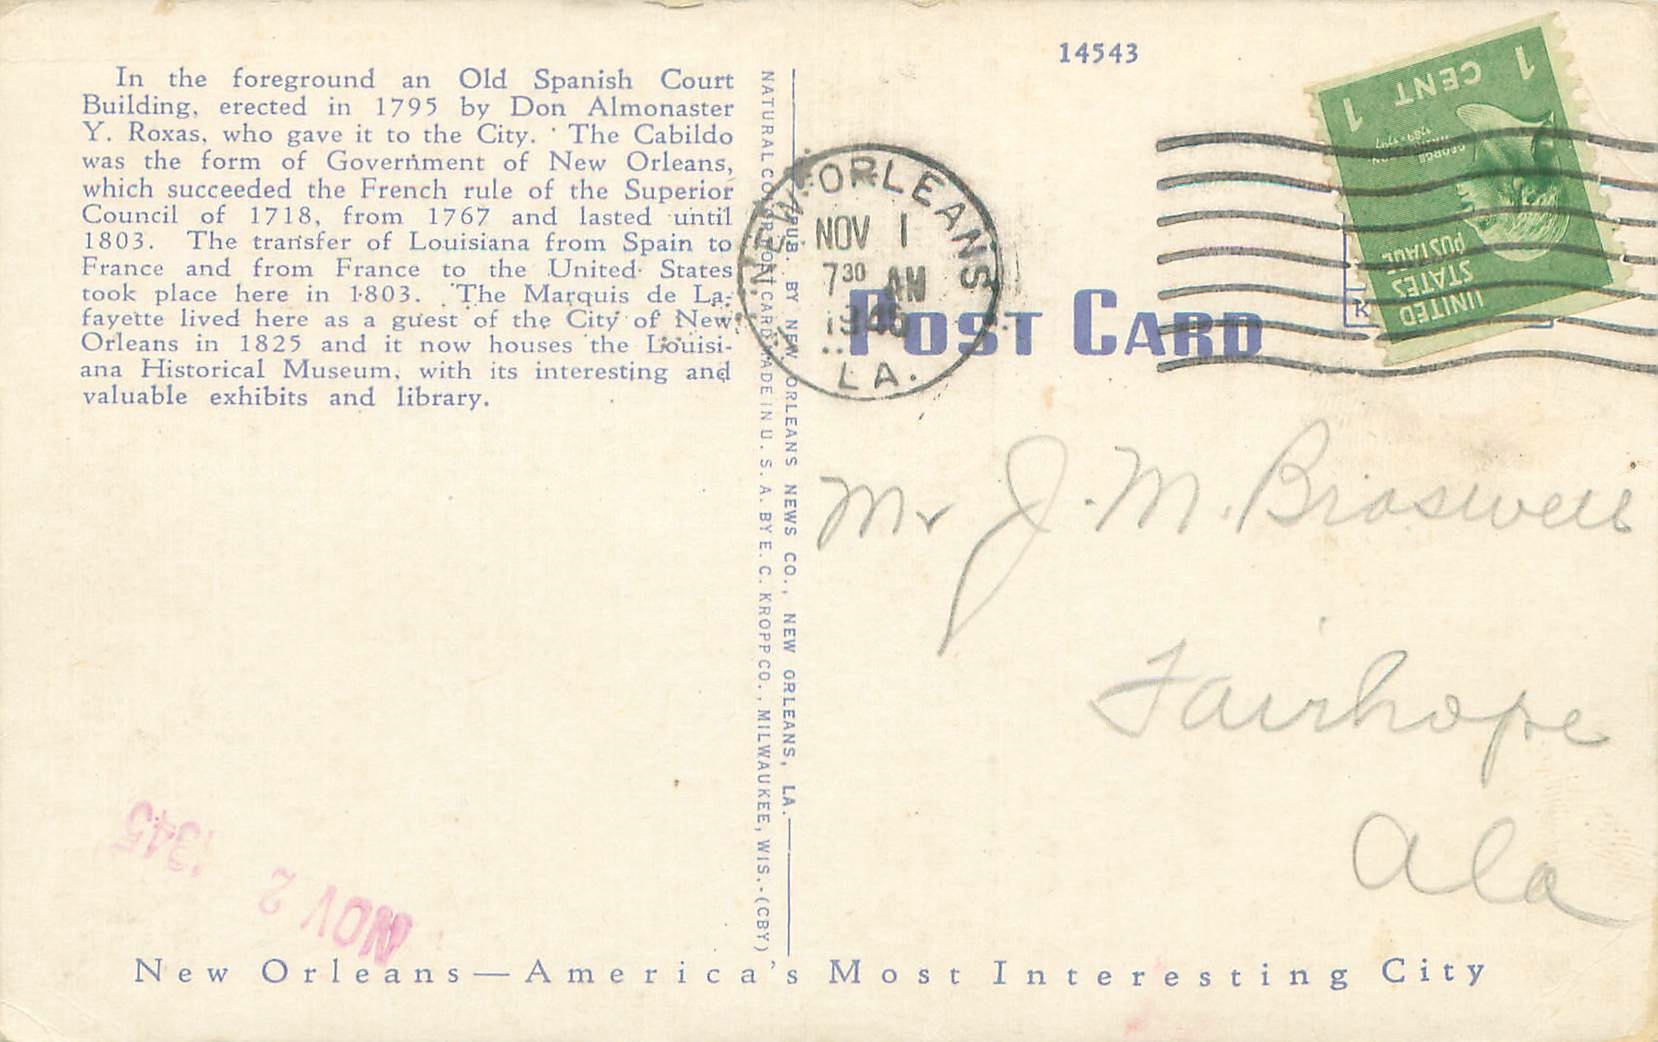 14543
In the foreground an Old Spanish Court
Building, erected in 1795 by Don Almonaster
Y. Roxas, who gave it to the City. The Cabildo
was the form of Government of New Orleans,
which succeeded the French rule of the Superior
Council of 1718, from 1767 and lasted until
1803. The transfer of Louisiana from Spain to
France and from France to the United States
took place here in 1803. The Marquis de La-
fayette lived here as a guest of the City of New
Orleans in 1825 and it now houses the Louisi-
ana Historical Museum, with its interesting and
valuable exhibits and library.
NATURAL COLOR POST CARD MADE IN U. S. A. BY E. C. KROPP CO., MILWAUKEE, WIS.-(CBY)
PUB. BY NEW ORLEANS NEWS CO., NEW ORLEANS, LA.
NEW ORLEANS
NOV 1
7 30 AM
1945
LA.
POST CARD
1 CENT 1
GEORGE WASHINGTON
1789-1797
UNITED
STATES
POSTAGE
K
Mr J. M. Braswell
Fairhope
Ala
NOV 2 1945
New Orleans—America's Most Interesting City